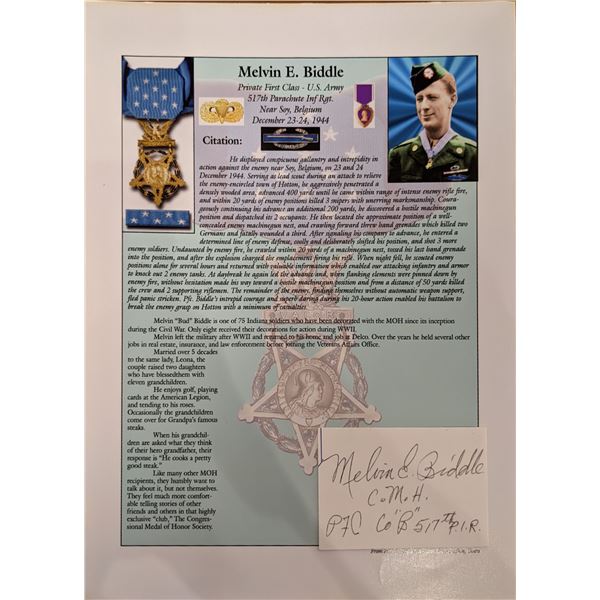 Melvin E. Biddle
Private First Class - U.S. Army
517th Parachute Inf Rgt.
Near Soy, Belgium
December 23-24, 1944
Citation:
He displayed conspicuous gallantry and intrepidity in
action against the enemy near Soy, Belgium, on 23 and 24
December 1944. Serving as lead scout during an attack to relieve
the enemy-encircled town of Hotton, he aggressively penetrated a
densely wooded area, advanced 400 yards until he came within range of intense enemy rifle fire,
and within 20 yards of enemy positions killed 3 snipers with unerring marksmanship. Coura-
geously continuing his advance an additional 200 yards, he discovered a hostile machinegun
position and dispatched its 2 occupants. He then located the approximate position of a well-
concealed enemy machinegun nest, and crawling forward threw hand grenades which killed two
Germans and fatally wounded a third. After signaling his company to advance, he entered a
determined line of enemy defense, coolly and deliberately shifted his position, and shot 3 more
enemy soldiers. Undaunted by enemy fire, he crawled within 20 yards of a machinegun nest, tossed his last hand grenade
into the position, and after the explosion charged the emplacement firing his rifle. When night fell, he scouted enemy
positions alone for several hours and returned with valuable information which enabled our attacking infantry and armor
to knock out 2 enemy tanks. At daybreak he again led the advance and, when flanking elements were pinned down by
enemy fire, without hesitation made his way toward a hostile machinegun position and from a distance of 50 yards killed
the crew and 2 supporting riflemen. The remainder of the enemy, finding themselves without automatic weapon support,
fled panic stricken. Pfc. Biddle's intrepid courage and superb daring during his 20-hour action enabled his battalion to
break the enemy grasp on Hotton with a minimum of casualties.
Melvin "Bud" Biddle is one of 75 Indiana soldiers who have been decorated with the MOH since its inception
during the Civil War. Only eight received their decorations for action during WWII.
Melvin left the military after WWII and returned to his home and job at Delco. Over the years he held several other
jobs in real estate, insurance, and law enforcement before joining the Veterans Affairs Office.
Married over 5 decades
to the same lady, Leona, the
couple raised two daughters
who have blessedthem with
eleven grandchildren.
He enjoys golf, playing
cards at the American Legion,
and tending to his roses.
Occasionally the grandchildren
come over for Grandpa's famous
steaks.
When his grandchil-
dren are asked what they think
of their hero grandfather, their
response is "He cooks a pretty
good steak."
Like many other MOH
recipients, they humbly want to
talk about it, but not themselves.
They feel much more comfort-
able telling stories of other
friends and others in that highly
exclusive "club," The Congres-
sional Medal of Honor Society.
Melvin E. Biddle
C.M.H.
PFC Co "B" 517th P.I.R.
From